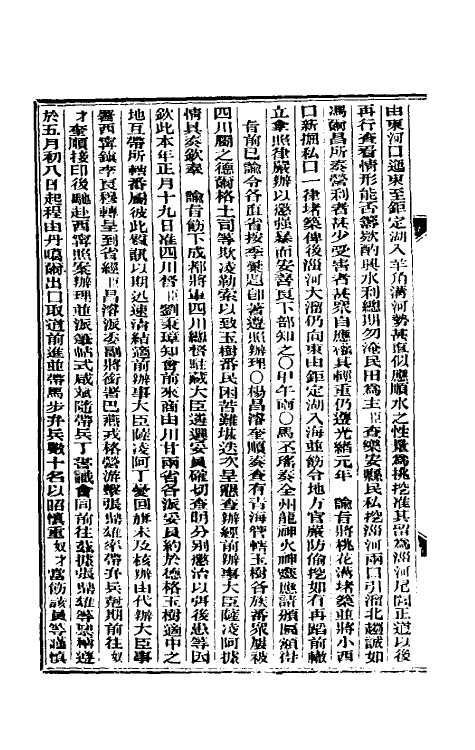 由東河口迤東至鉅定湖入羊角溝河勢甚直似應順水之性量為挑挖准其留為淄河尾閭正道以後
再行查看情形能否籌款酌興水利總期勿淹民田為主臣查樂安縣民私挖淄河南口引溜北趨誠如
馮爾昌所奏營利者甚少受害者甚眾自應權其輕重仍遵光緒元年　諭旨將桃花溝堵築並將小西
口新掘私口一律堵築俾後淄河大溜仍向東由鉅定湖入海並飭令地方官嚴防偷挖如有再蹈前轍
立拿照律嚴辦以懲強暴而安善良下部知之○甲午諭○馬丕瑤奏全州龍神火神靈應請頒匾額得
旨前已諭令各直省按季彙題即著遵照辦理○楊昌濬奎順奏查有青海管轄玉樹各族番眾屢被
四川屬之德爾格土司等欺凌勒索以致玉樹番民困苦難堪迭次呈懇查辦經前辦事大臣薩凌阿據
情具奏欽奉　諭旨飭下成都將軍四川總督駐藏大臣遴選妥員確切查明分別懲治以弭後患等因
欽此本年正月十九日准四川督臣劉秉璋知會前來商由川甘兩省各派妥員約於德格玉樹適中之
地互帶所轄番屬彼此質訊以期迅速清結適前辦事大臣薩凌阿丁憂回旗未及核辦由代辦大臣事
署西寧鎮李良穆轉呈到省經臣昌濬派委副將銜署巴燕戎格營游擊張鼎雄率帶弁兵剋期前往奴
才奎順接印後馳赴西寧照案辦理並派筆帖式咸斌隨帶兵丁書識會同前往茲據張鼎雄等稟稱遵
於五月初八日起程由丹噶爾出口取道前進並帶馬步弁兵數十名以昭慎重奴才當飭該員等謹慎